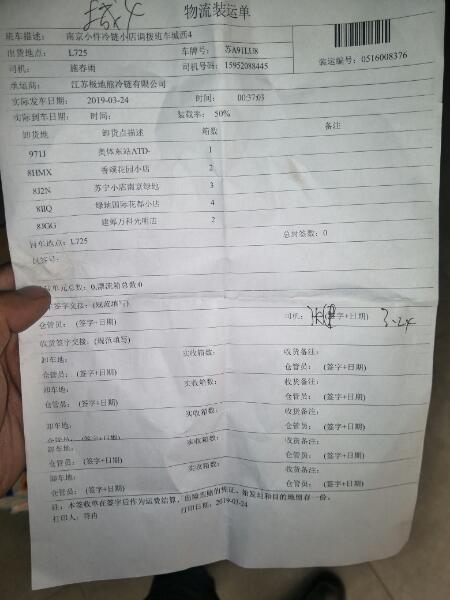 物流装运单
班车描述： 南京小件冷链小店调拨班车城西4
装运编号：0516008376
出货地点： L725 车牌号： 苏A91LU8
司机： 施春雨 司机号码： 15952088445
承运商： 江苏极地熊冷链有限公司
实际发车日期： 2019-03-24 时间： 00:37:03
实际到车日期： 时间： 装载率： 50%
卸货地 卸货点描述 箱数 备注
971J 奥体东站ATD- 1
8HMX 香颂花园小店 2
8J2N 苏宁小店南京绿地 3
8IIQ 绿地国际花都小店 4
83GG 建邺万科光明店 2
回车地点：L725 总封签数：0
封签号：
单元总数：0,漂流箱总数:0
签字交接：(规范填写)
仓管员： (签字+日期) 司机： (签字+日期) 3-24
收货签字交接：(规范填写)
卸车地： 实收箱数： 收货备注：
仓管员： (签字+日期) 仓管员： (签字+日期)
卸车地： 实收箱数： 收货备注：
仓管员： (签字+日期) 仓管员： (签字+日期)
卸车地： 实收箱数： 收货备注：
仓管员： (签字+日期) 仓管员： (签字+日期)
卸车地： 实收箱数： 收货备注：
仓管员： (签字+日期) 仓管员： (签字+日期)
卸车地： 实收箱数： 收货备注：
仓管员： (签字+日期) 仓管员： (签字+日期)
注：本签收单在签字后作为运费结算，出险理赔的凭证，始发站和目的地各留存一份。
打印人：符冉 打印日期：2019-03-24